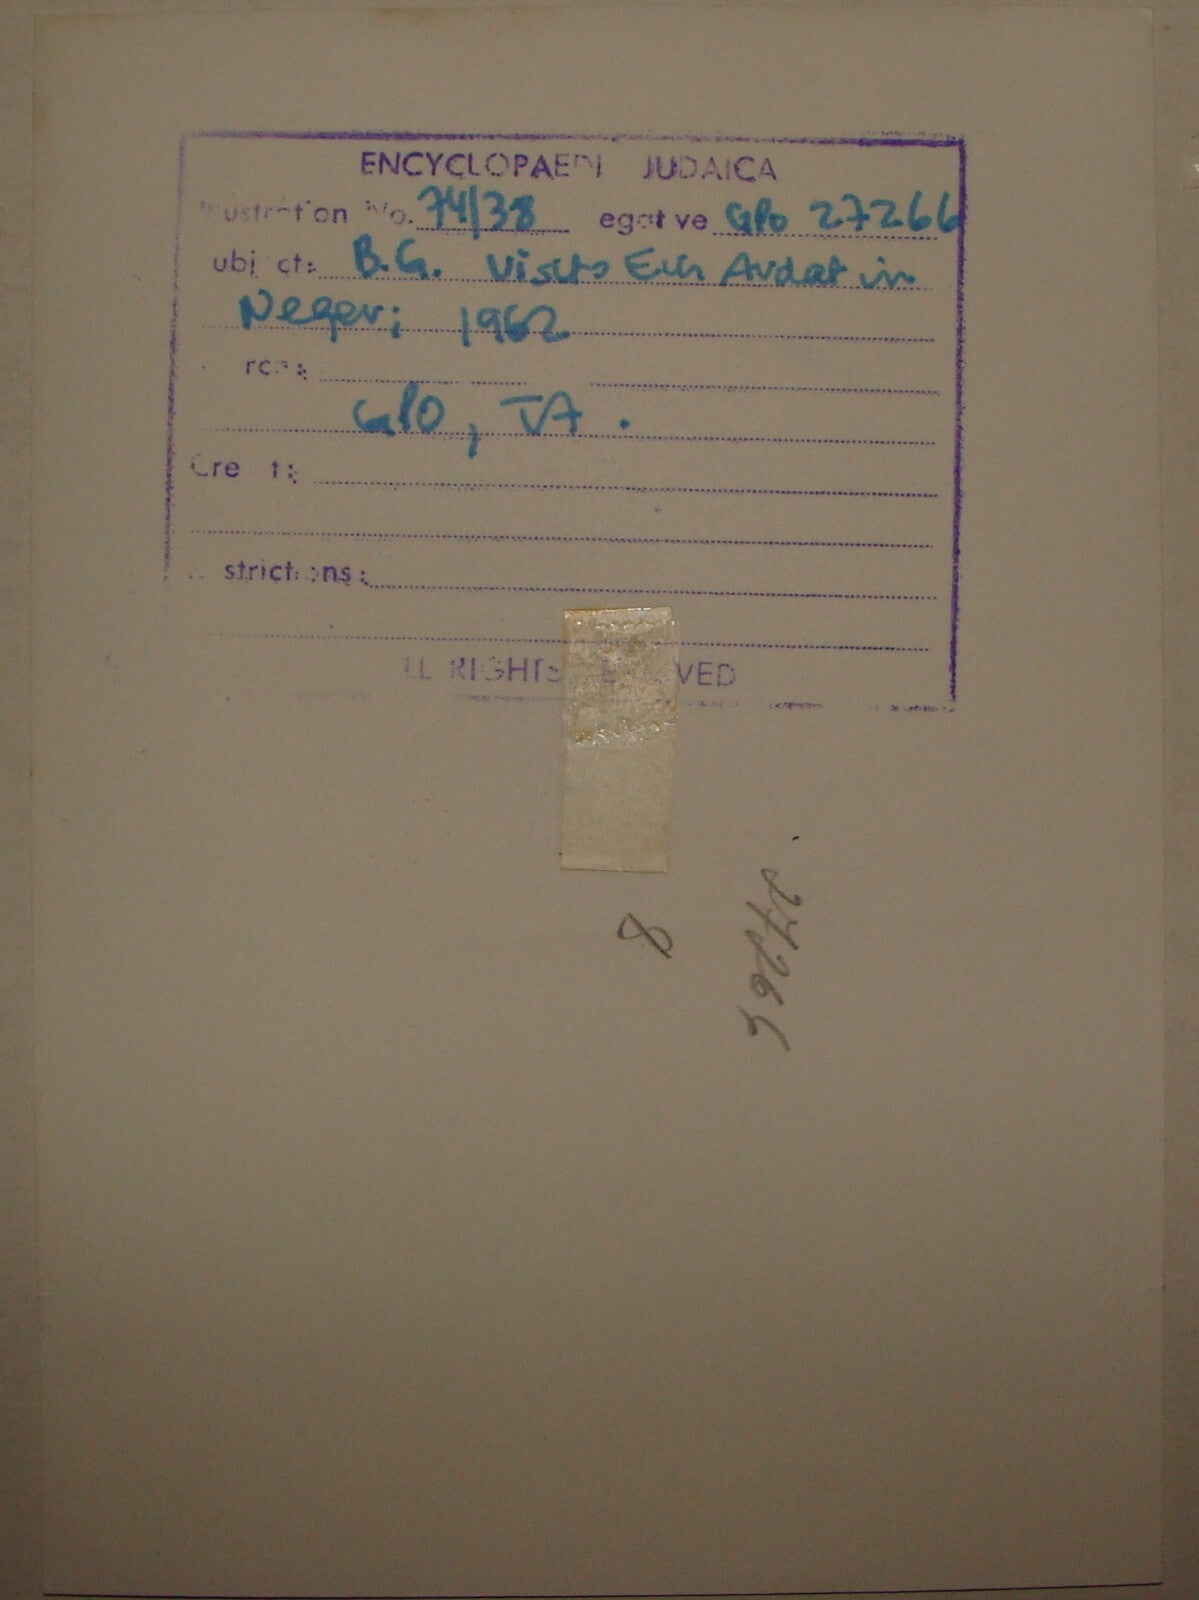 ENCYCLOPAEDI JUDAICA
ustration No. 74/38 egative GPO 27266
ubject: B.G. visits Ein Avdat in
Negev; 1962
rce:
GPO, TA.
Cre t:
strictions:
LL RIGHTS RE VED
8
27266